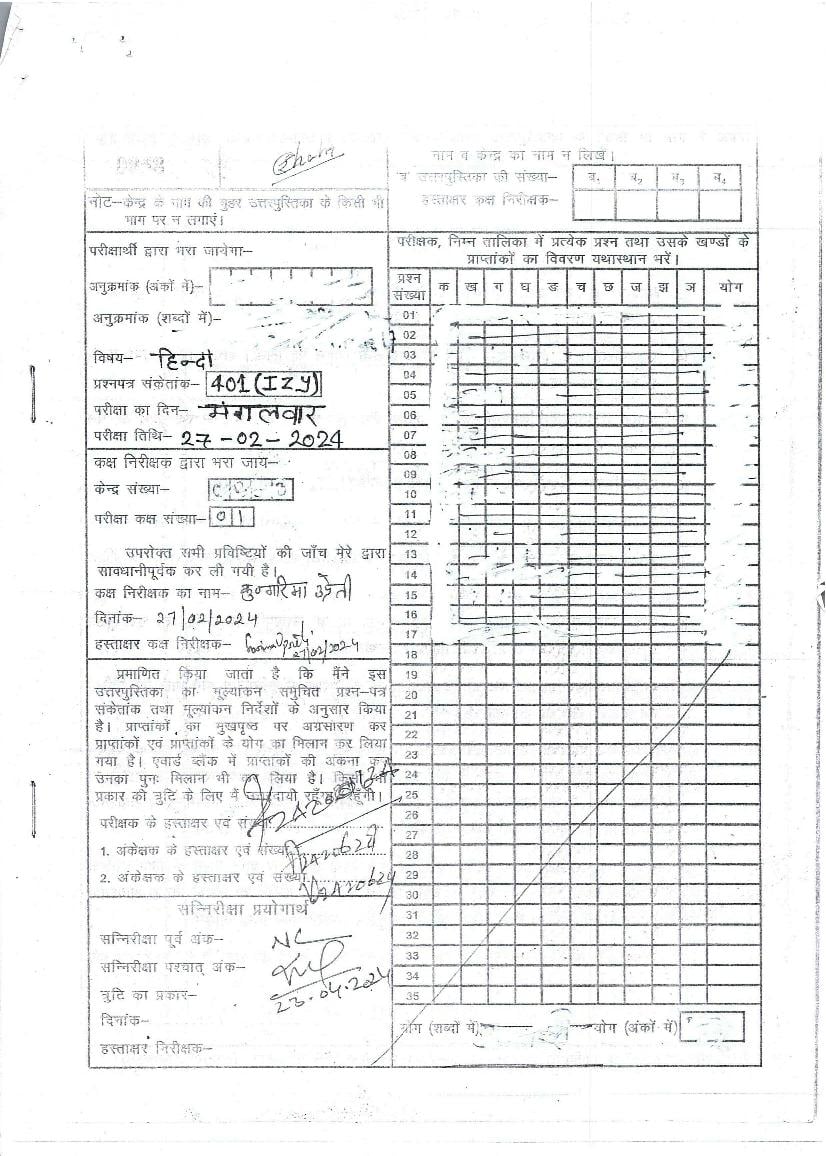 नाम व केन्द्र का नाम न लिखें।
'ब' उत्तरपुस्तिका की संख्या–
ब₁ ब₂ ब₃ ब₄
हस्ताक्षर कक्ष निरीक्षक–
नोट–केन्द्र के नाम की मुहर उत्तरपुस्तिका के किसी भी
भाग पर न लगाएं।
परीक्षार्थी द्वारा भरा जायेगा–
अनुक्रमांक (अंकों में)–
अनुक्रमांक (शब्दों में)–
विषय– हिन्दी
प्रश्नपत्र संकेतांक– 401(IZY)
परीक्षा का दिन– मंगलवार
परीक्षा तिथि– 27-02-2024
कक्ष निरीक्षक द्वारा भरा जाय–
केन्द्र संख्या–
परीक्षा कक्ष संख्या– 01
उपरोक्त सभी प्रविष्टियों की जाँच मेरे द्वारा
सावधानीपूर्वक कर ली गयी है।
कक्ष निरीक्षक का नाम–
दिनांक– 27/02/2024
हस्ताक्षर कक्ष निरीक्षक– 27/02/2024
प्रमाणित किया जाता है कि मैंने इस
उत्तरपुस्तिका का मूल्यांकन समुचित प्रश्न–पत्र
संकेतांक तथा मूल्यांकन निर्देशों के अनुसार किया
है। प्राप्तांकों का मुखपृष्ठ पर अग्रसारण कर
प्राप्तांकों एवं प्राप्तांकों के योग का मिलान कर लिया
गया है। एवार्ड ब्लैंक में प्राप्तांकों की अंकना कर
उनका पुनः मिलान भी कर लिया है। किसी भी
प्रकार की त्रुटि के लिए मैं रहूँगा/रहूँगी।
परीक्षक के हस्ताक्षर एवं संख्या
1. अंकेक्षक के हस्ताक्षर एवं संख्या
2. अंकेक्षक के हस्ताक्षर एवं संख्या
सन्निरीक्षा प्रयोगार्थ
सन्निरीक्षा पूर्व अंक– NC
सन्निरीक्षा पश्चात् अंक–
त्रुटि का प्रकार– 23.04.2024
दिनांक–
हस्ताक्षर निरीक्षक–
परीक्षक, निम्न तालिका में प्रत्येक प्रश्न तथा उसके खण्डों के
प्राप्तांकों का विवरण यथास्थान भरें।
प्रश्न संख्या क ख ग घ ङ च छ ज झ ञ योग
01
02
03
04
05
06
07
08
09
10
11
12
13
14
15
16
17
18
19
20
21
22
23
24
25
26
27
28
29
30
31
32
33
34
35
योग (शब्दों में) योग (अंकों में)